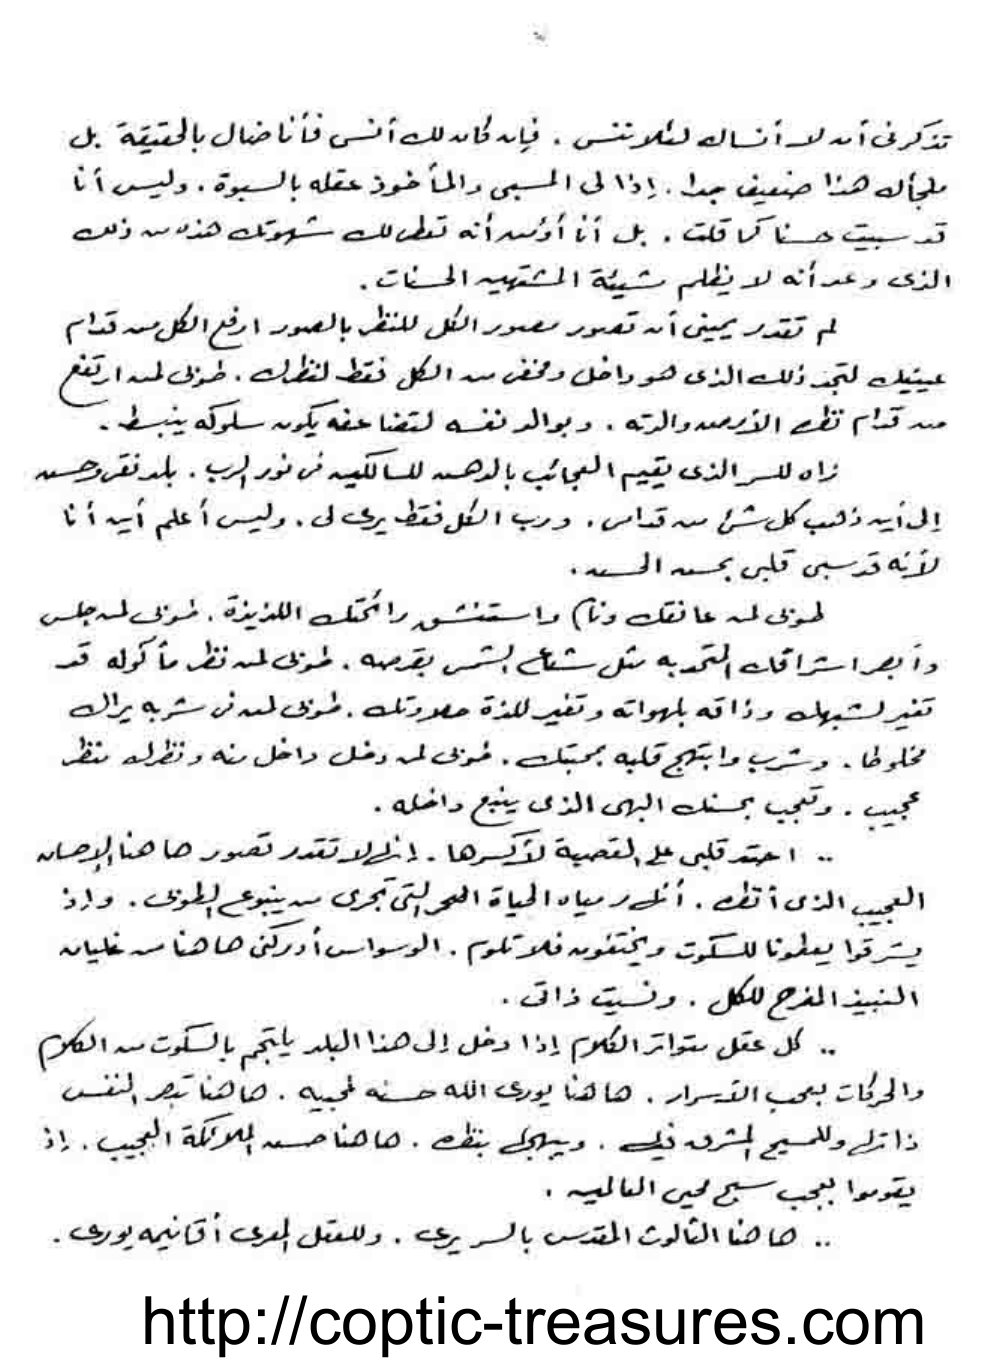 تذكرنى أن لا أنساك لئلا تنس . فإن كان لك أنس فأنا ضال بالحقيقة بل
ملجأك هذا ضعيف جدا . إذا لى المسبى والمأخوذ عقله بالسبوة . وليس أنا
قد سبيت حسنا كما قلت . بل أنا أؤمن أنه تعطى لك شهوتك هذه من ذلك
الذى وعد أنه لا يظلم مشيئة المشتهين الحسنات .
لم تقدر يمينى أن تصور مصور الكل للنظر بالصور ارفع الكل من قدام
عينيك لتجد ذلك الذى هو داخل ومخفى من الكل فقط لنظرك . طوبى لمن ارتفع
من قدام نظره الأرض والدته . وبوالد نفسه لتضاعفه يكون سلوكه ينبسط .
زاه للسر الذى يقيم العجائب بالدهش للسالكين فى نور الرب . بلد نقى وحسن
إلى أين ذهب كل شئ من قدامى . ورب الكل فقط يرى لى . وليس أعلم أين أنا
لأنه قد سبى قلبى بحسن الحسن .
طوبى لمن عانقك ونام واستنشق رائحتك اللذيذة . طوبى لمن جلس
وأبصر اشراقك المتحد به مثل شعاع الشمس بقرصه . طوبى لمن نظر مأكوله قد
تغير لشبهك وذاقه بلهواته وتغير للذة حلاوتك . طوبى لمن فى شربه يراك
مخلوطا . وشرب وابتهج قلبه بمحبتك . طوبى لمن دخل داخل منه ونظرك منظر
عجيب . وتعجب بحسنك البهى الذى ينبع داخله .
.. احتد قلبى على القصبة لأكسرها . إنك لا تقدر تصور هاهنا الإحسان
العجيب الذى أنظره . أنك ومياه الحياة البحر التى تجرى من ينبوع الطوبى . وإذ
يشرقوا يعطونا للسكوت ويختفون فلا تلوم . الوسواس أدركنى هاهنا من غليان
النبيذ المفرح للكل . ونسيت ذاتى .
.. كل عقل متواتر الكلام إذا دخل إلى هذا البلد يلتجم بالسكوت من الكلام
والحركات بعجب الأسرار . هاهنا يورى الله حسنه لمحبيه . هاهنا تبصر النفس
ذاتها وللمسيح المشرق فيها . ويبهجها بنظره . هاهنا حسن الملائكة العجيب . إذ
يقوموا بعجب سبح محيى العالمين .
.. هاهنا الثالوث المقدس بالسر يرى . وللعقل المعرى أقانيمه يورى .
http://coptic-treasures.com